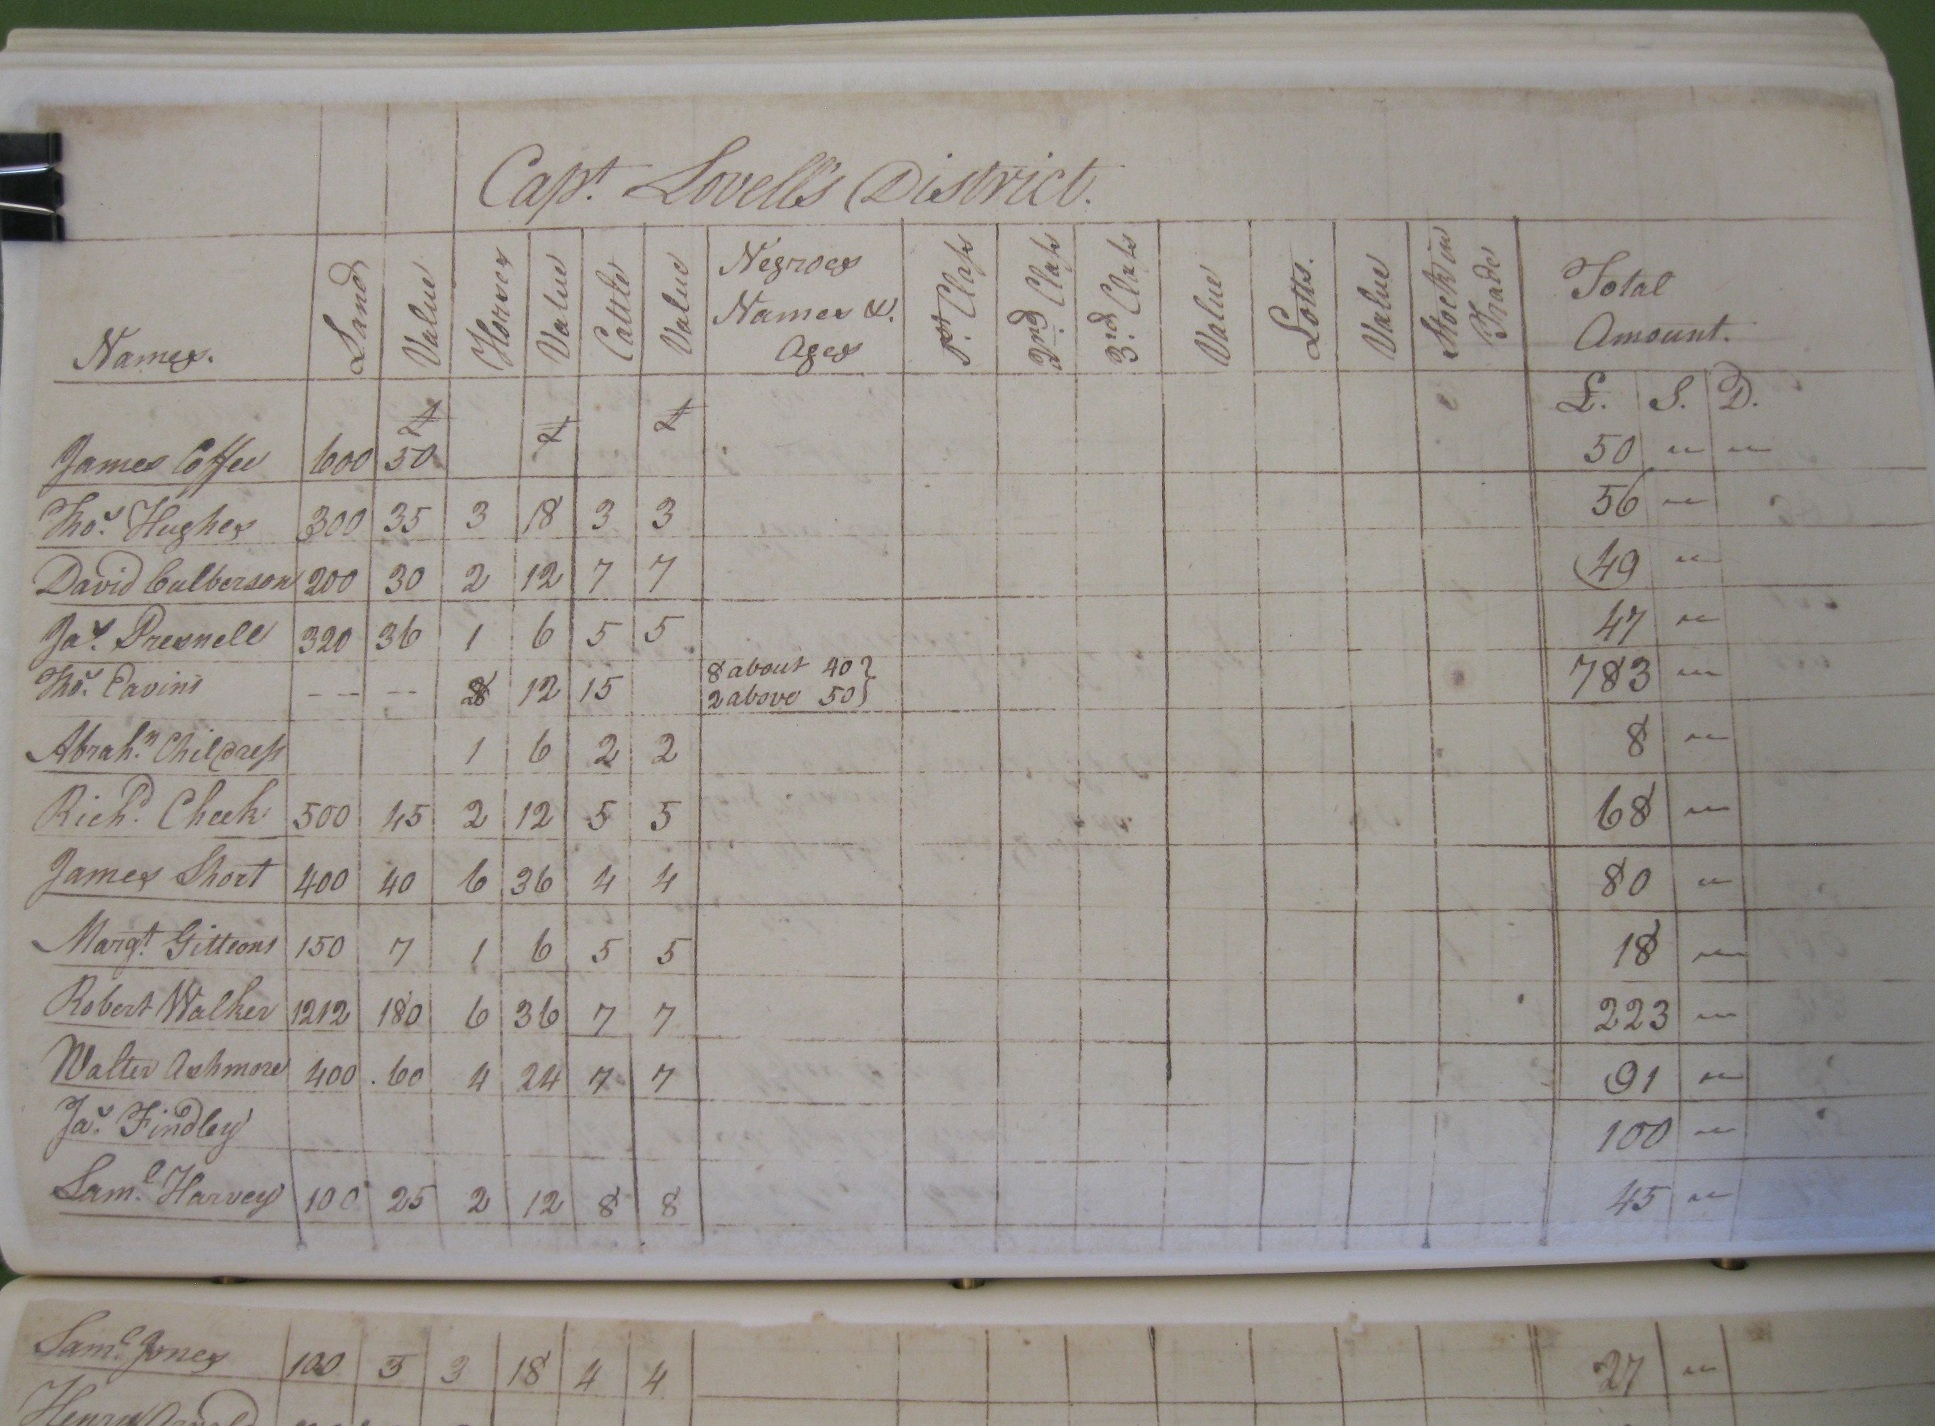 Capt. Lovell's District.
Names. Land Value Horses Value Cattle Value Negroes Names &. Ages 1st. Class 2nd. Class 3rd. Class Value Lotts. Value Stock in Trade Total Amount.
£ £ £ £. S. D.
James Coffee 600 50 50 " "
Thos. Hughes 300 35 3 18 3 3 56 "
David Culberson 200 30 2 12 7 7 49 "
Jas. Presnell 320 36 1 6 5 5 47 "
Thos. Cavins -- -- 2 12 15 8 about 40 } 2 above 50 } 783 "
Abrahm. Childress 1 6 2 2 8 "
Richd. Cheek 500 45 2 12 5 5 68 "
James Short 400 40 6 36 4 4 80 "
Margt. Gitteons 150 7 1 6 5 5 18 "
Robert Walker 1212 180 6 36 7 7 223 "
Walter Ashmore 400 60 4 24 7 7 91 "
Jas. Findley 100 "
Saml. Harvey 100 25 2 12 8 8 45 "
Saml. Jones 100 5 3 18 4 4 27 "